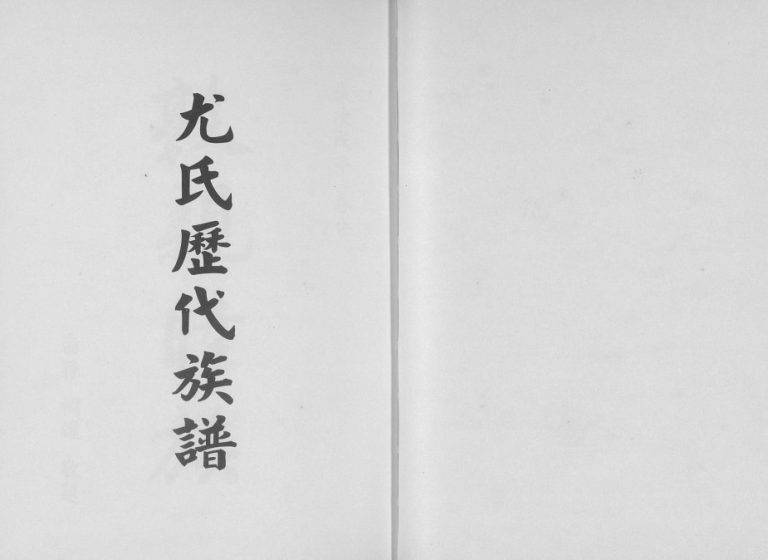 尤氏歷代族譜